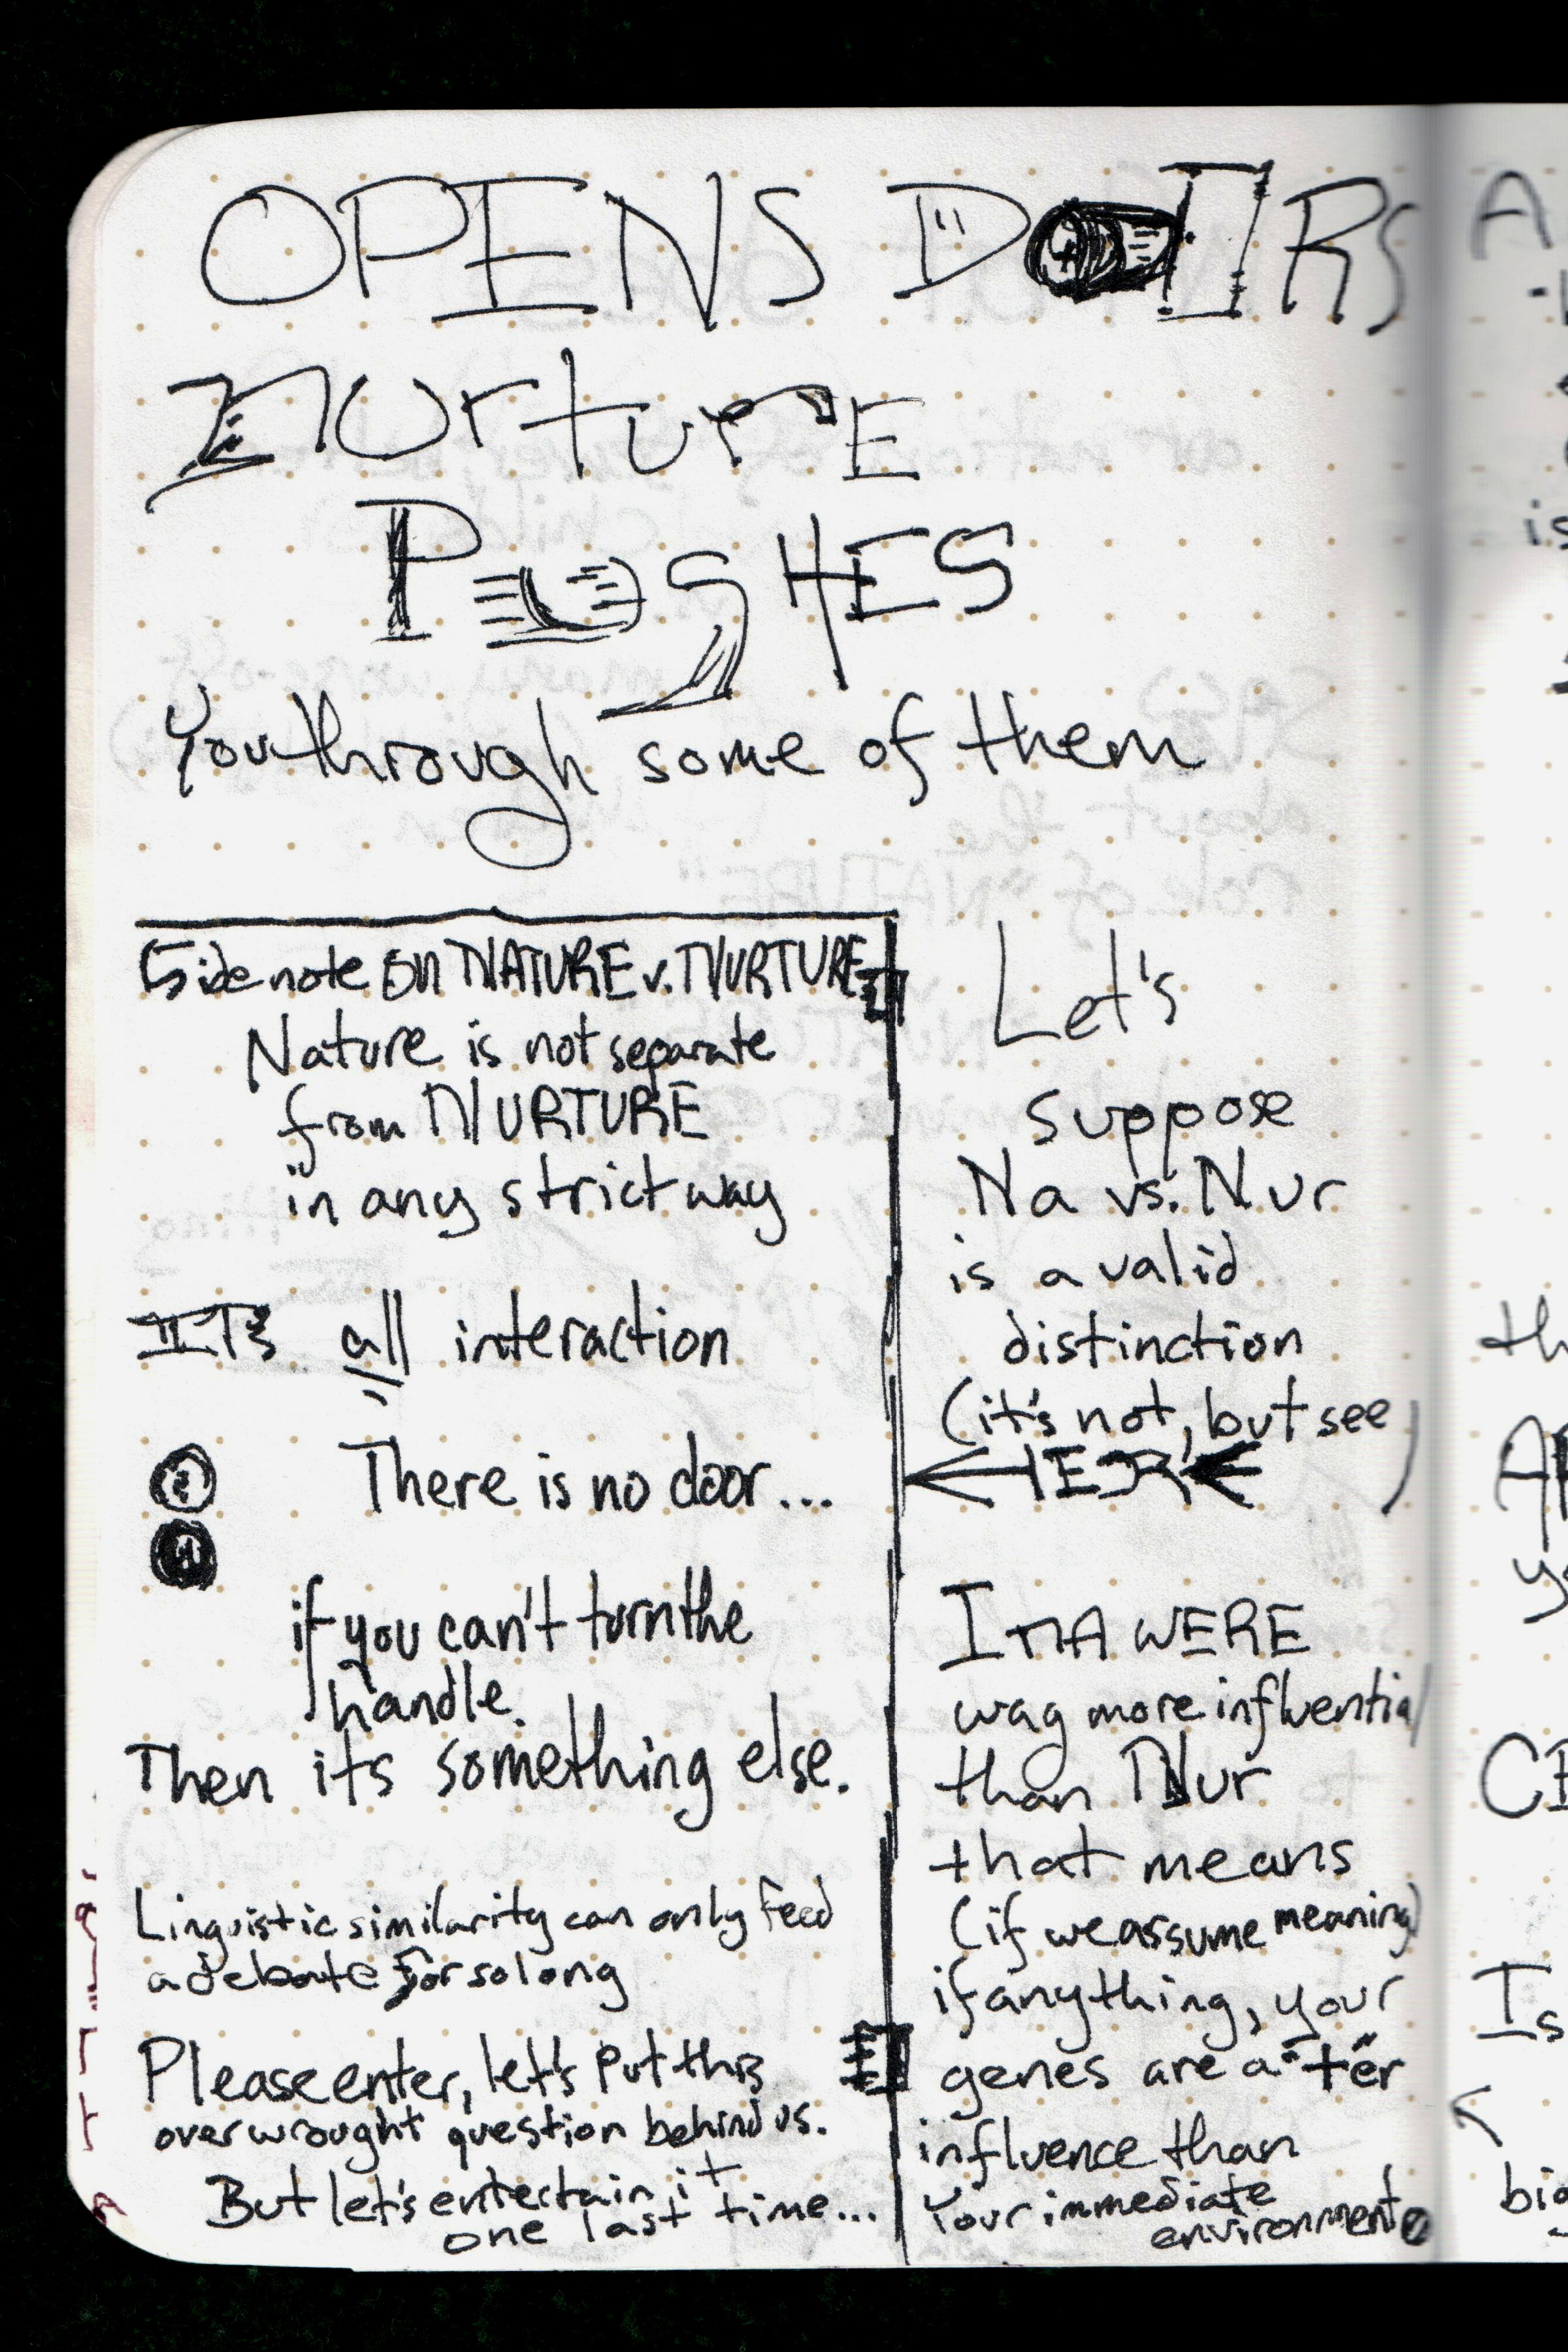 OPENS DOORS
nurturE
PUSHES
You through some of them
Sidenote ON NATURE v. NURTURE
Nature is not separate
from NURTURE
in any strict way
ITS all interaction
There is no door...
if you can't turn the
handle.
Then its something else.
Linguistic similarity can only feed
a debate for so long
Please enter, let's put this
overwrought question behind us.
But let's entertain it
one last time...
Let's
suppose
Na vs. Nur
is a valid
distinction
(it's not, but see
HERE)
If nA WERE
way more influential
than Nur
that means
(if we assume meaning)
if anything, your
genes are a "+"er
influence than
Your immediate
environment